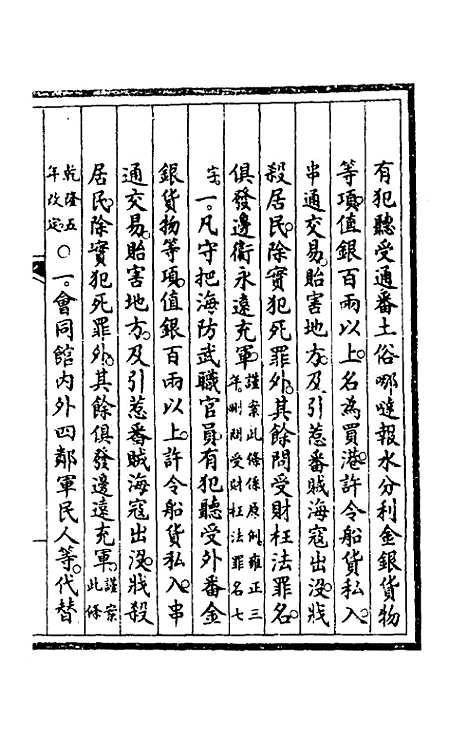 有犯聽受通番土俗哪噠報水分利金銀貨物
等項。值銀百兩以上。名為買港許令船貨私入。
串通交易。貽害地方。及引惹番賊海寇出没。戕
殺居民。除實犯死罪外。其餘問受財枉法罪名。
俱發邊衞永遠充軍。謹案此條係原例。雍正三年。刪問受財枉法罪名七
字。一。凡守把海防武職官員。有犯聽受外番金
銀貨物等項。值銀百兩以上。許令船貨私入。串
通交易。貽害地方。及引惹番賊海寇出没。戕殺
居民。除實犯死罪外。其餘俱發邊遠充軍。謹案此條
乾隆五年改定。○一。會同館內外四鄰軍民人等。代替